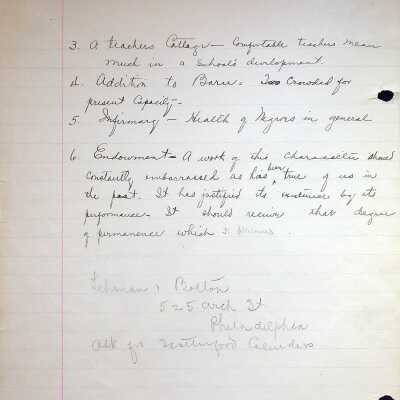 3. A teachers Cottage — Comfortable teachers mean
much in a school's development
4. Addition to Barn - Too Crowded for
present Capacity -
5. Infirmary — Health of Negroes in general
6. Endowment — A work of this character should
constantly embarrassed as has been true of us in
the past. It has justified its existence by its
performance - It should receive that degree
of permanence which
Lehman & Bolton
525 Arch St
Philadelphia
Ask for Calendars